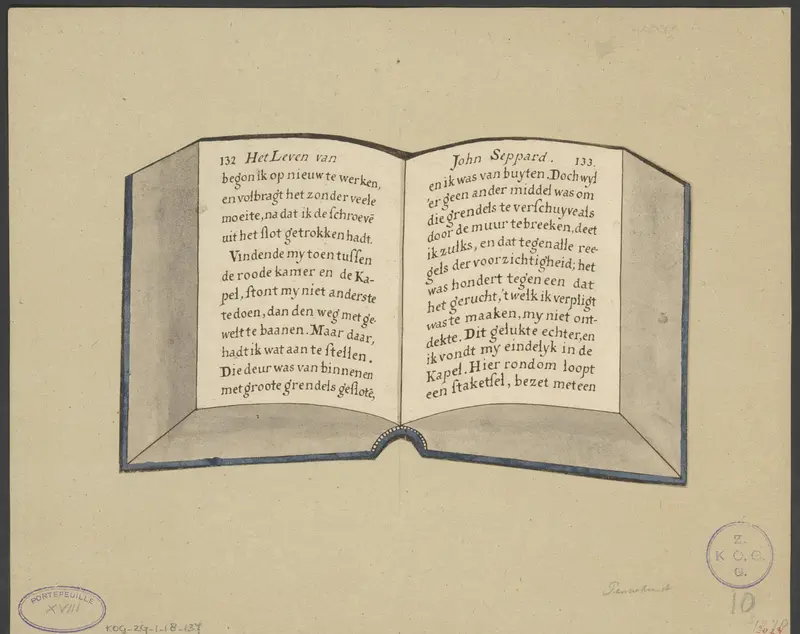 132 Het Leven van
begon ik op nieuw te werken,
en volbragt het zonder veele
moeite, na dat ik de ſchroevē
uit het ſlot getrokken hadt.
Vindende my toen tuſſen
de roode kamer en de Ka-
pel, ſtont my niet anderste
te doen, dan den weg met ge-
welt te baanen. Maar daar,
hadt ik wat aan te ſtellen.
Die deur was van binnenen
met groote grendels geſlotē,
John Seppard. 133.
en ik was van buyten. Doch wyl
'er geen ander middel was om
die grendels te verſchuyve als
door de muur te breeken, deet
ik zulks, en dat tegen alle ree-
gels der voorzichtigheid; het
was hondert tegen een dat
het gerucht, 't welk ik verpligt
was te maaken, my niet ont-
dekte. Dit gelukte echter, en
ik vondt my eindelyk in de
Kapel. Hier rondom loopt
een ſtaketſel, bezet met een
Z.
K O. G.
G.
PORTEFEUILLE
XVIII
KOG-ZG-1-18-137
10